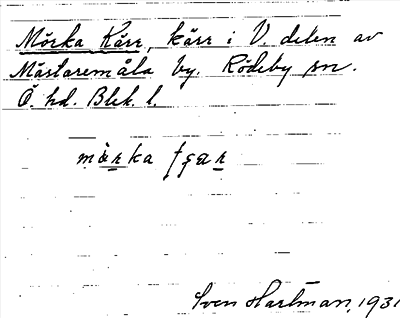 Mörka Kärr, kärr i V delen av
Mästaremåla by. Rödeby sn.
Ö. hd. Blek. l.
mörka
Sven Hartman, 1931